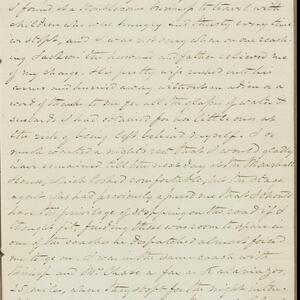 I found it a troublesome business to travel with
children who were hungry and thirsty every time
we stopt, and I was not sorry when on our reach-
ing Jackson the husband and father relieved me
of my charge. His pretty wife rushed into his
arms and hurried away without an adieu or a
word of thanks to me for all the glasses of water &
custards I had obtained for her little ones at
the risk of being left behind myself. I so
much wanted a night's rest that I would gladly
have remained till the next day at the Marshall
House, which looked comfortable, but the stage
agent who had previously assured me that I should
have the privilege of stopping on the road if I
thought fit, finding there was room to spare in
one of the coaches he despatched almost forced
me to go on. I was in the same coach with
Bishop and Mrs Chase as far as Kalamazoo,
25 miles, where they stopt for the night inten-